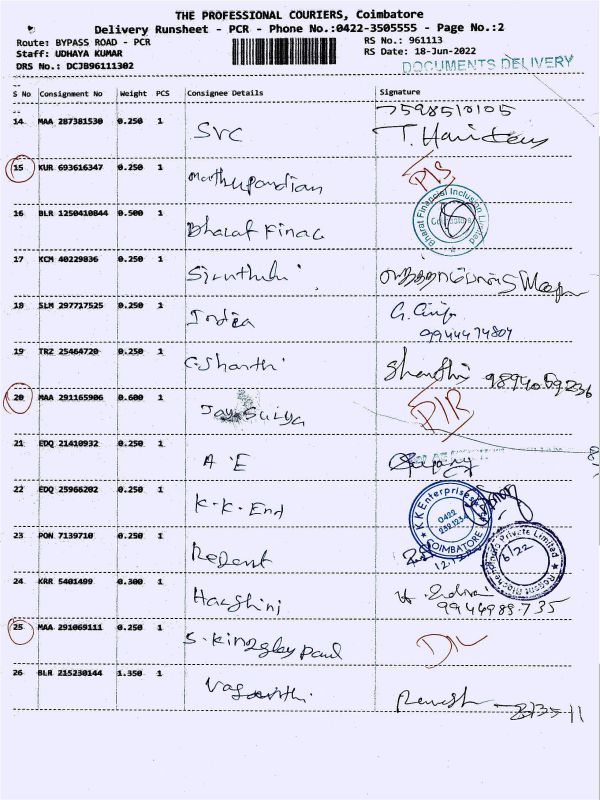 THE PROFESSIONAL COURIERS, Coimbatore
Delivery Runsheet - PCR - Phone No.:0422-3505555 - Page No.:2
Route: BYPASS ROAD - PCR RS No.: 961113
Staff: UDHAYA KUMAR RS Date: 18-Jun-2022
DRS No.: DCJB96111302 DOCUMENTS DELIVERY
S No Consignment No Weight PCS Consignee Details Signature
7598510105
14 MAA 287381530 0.250 1 SVC
15 KUR 693616347 0.250 1 Muthupandian
16 BLR 1250410844 0.500 1 Bharat Finac Bharat Financial Inclusion Limited
17 KCM 40229836 0.250 1
18 SLM 297717525 0.250 1 India
9944474807
19 TRZ 25464720 0.250 1 C. Shanthi Shanthi
20 MAA 291165906 0.600 1 Jay Suriya
21 EDQ 21410932 0.250 1 A E
22 EDQ 25966202 0.250 1 K.K. Ent K K Enterprises 0422 COIMBATORE
23 PON 7139710 0.250 1 Regent Private Limited
24 KRR 5401499 0.300 1 Harshini
25 MAA 291069111 0.250 1 S. Kingsley Paul DL
26 BLR 215230144 1.350 1 Ramesh